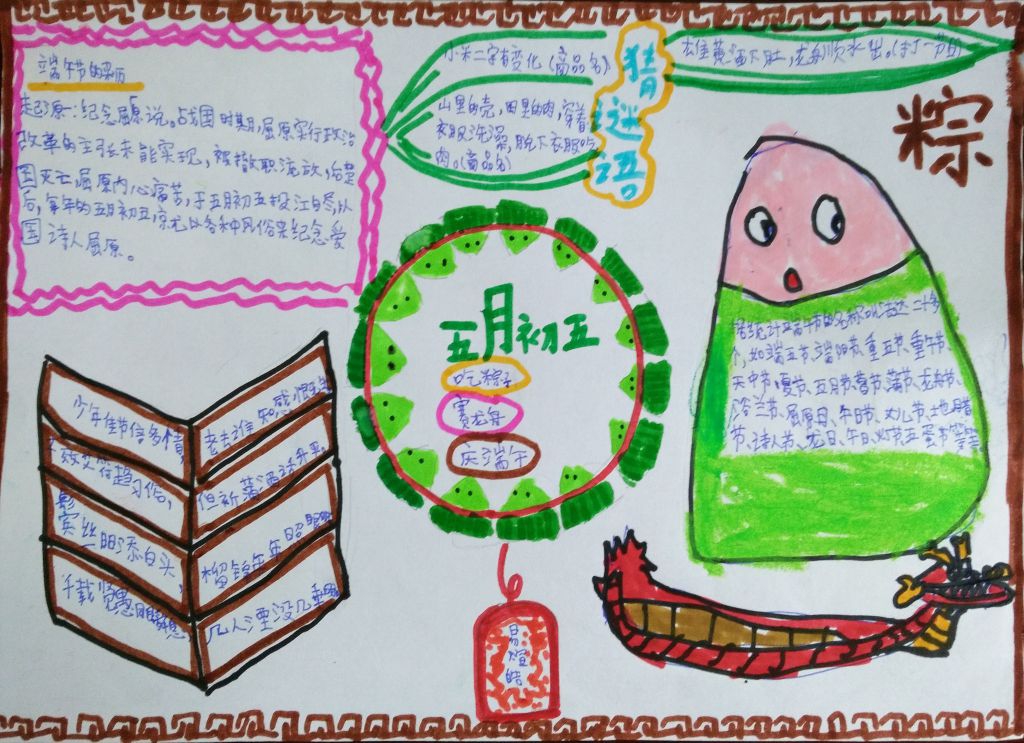 端午节的来历
起源一：纪念屈原说。战国时期，屈原实行政治
改革的主张未能实现，被撤职流放，后楚
国灭亡屈原内心痛苦，于五月初五投江自尽，从
后，每年的五月初五，就以各种风俗来纪念爱
国诗人屈原。
小米二字有变化（商品名）
山里的壳，田里的肉，穿着
衣服洗澡，脱下衣服吃
肉。（商品名）
猜谜语
去雄黄酒下肚，龙舟顺水出。（打一节日
粽
五月初五
吃粽子
赛龙舟
庆端午
据统计端午节的名称叫法达二十多
个，如端五节、端阳节、重五节、重午节、
天中节、夏节、五月节、菖节、蒲节、龙舟节、
浴兰节、屈原日、午日节、女儿节、地腊
节、诗人节、龙日、午日、灯节、五蛋节等等
少年佳节倍多情
老去谁知感慨生
不效艾符趋习俗，
但祈蒲酒话升平
鬓丝日日添白头，
榴锦年年照眼明
千载贤愚同瞬息
几人湮没几垂名
易煊皓